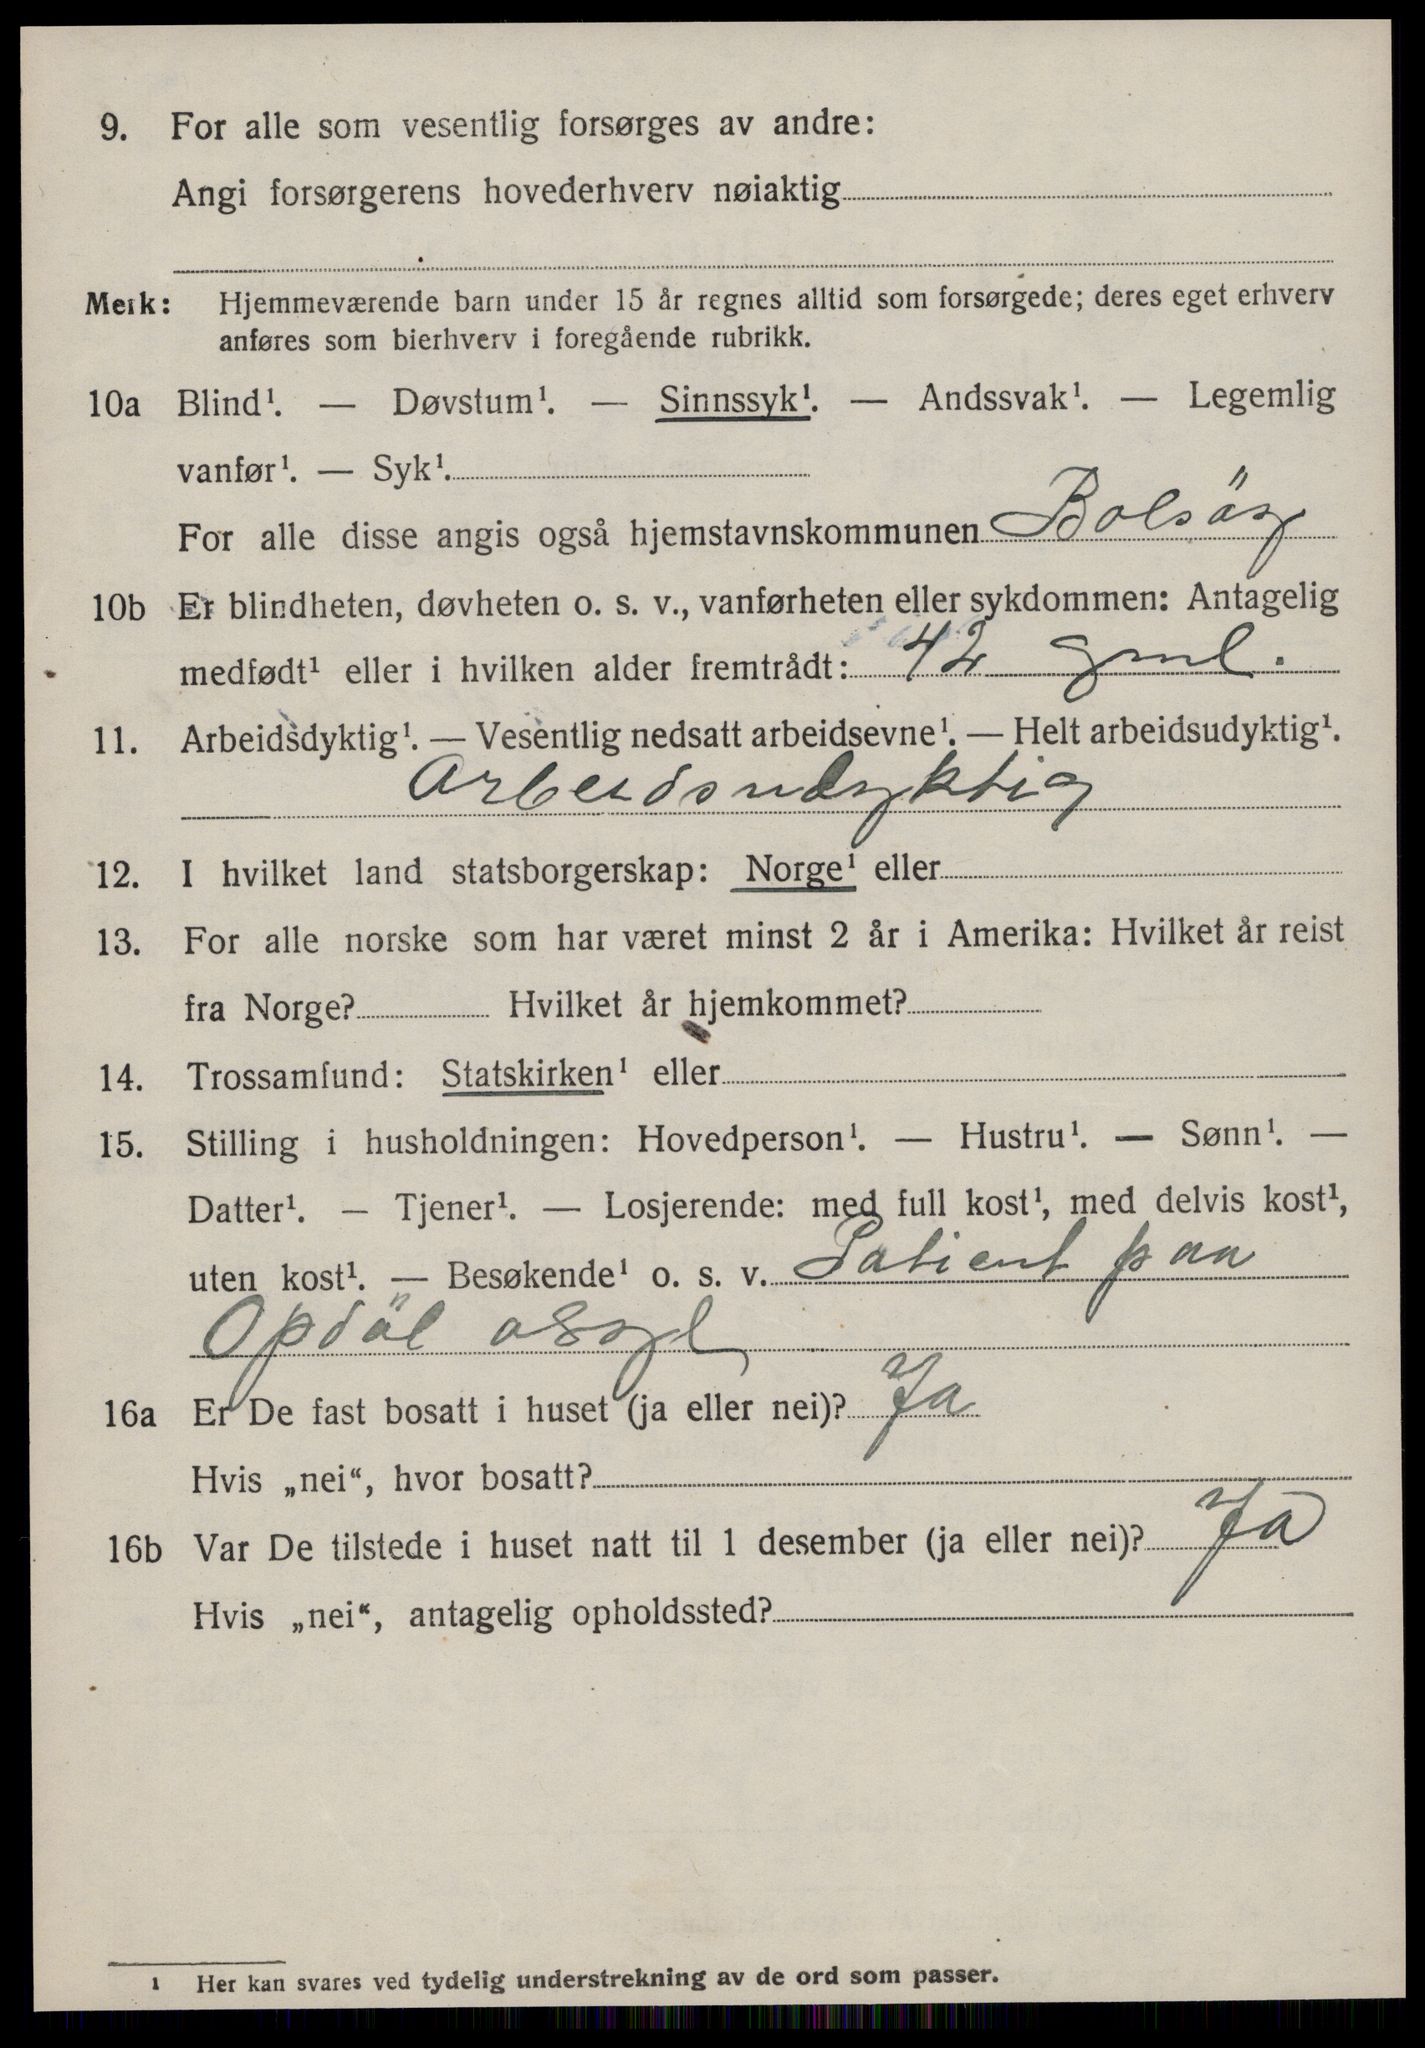 9. For alle som vesentlig forsørges av andre:
Angi forsørgerens hovederhverv nøiaktig
Merk: Hjemmeværende barn under 15 år regnes alltid som forsørgede; deres eget erhverv
anføres som bierhverv i foregående rubrikk.
10a Blind¹. — Døvstum¹. — Sinnssyk¹. — Andssvak¹. — Legemlig
vanfør¹. — Syk¹.
For alle disse angis også hjemstavnskommunen Bolsöy
10b Er blindheten, døvheten o. s. v., vanførheten eller sykdommen: Antagelig
medfødt¹ eller i hvilken alder fremtrådt: 42 gml.
11. Arbeidsdyktig¹. — Vesentlig nedsatt arbeidsevne¹. — Helt arbeidsudyktig¹.
Arbeidsudyktig
12. I hvilket land statsborgerskap: Norge¹ eller
13. For alle norske som har været minst 2 år i Amerika: Hvilket år reist
fra Norge? Hvilket år hjemkommet?
14. Trossamfund: Statskirken¹ eller
15. Stilling i husholdningen: Hovedperson¹. — Hustru¹. — Sønn¹. —
Datter¹. — Tjener¹. — Losjerende: med full kost¹, med delvis kost¹,
uten kost¹. — Besøkende¹ o. s. v. Patient paa
Opdöl asyl
16a Er De fast bosatt i huset (ja eller nei)? Ja
Hvis „nei“, hvor bosatt?
16b Var De tilstede i huset natt til 1 desember (ja eller nei)? Ja
Hvis „nei“, antagelig opholdssted?
¹ Her kan svares ved tydelig understrekning av de ord som passer.